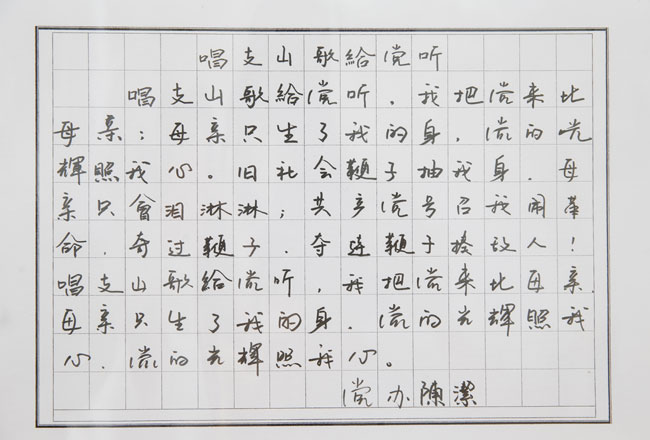 唱支山歌給党听
唱支山歌給党听，我把党来比
母亲；母亲只生了我的身，党的光
輝照我心。旧社会鞭子抽我身，母
亲只會泪淋淋；共产党号召我闹革
命，夺过鞭子，夺过鞭子揍敌人！
唱支山歌給党听，我把党来比母亲，
母亲只生了我的身，党的光輝照我
心，党的光輝照我心。
党办陳潔